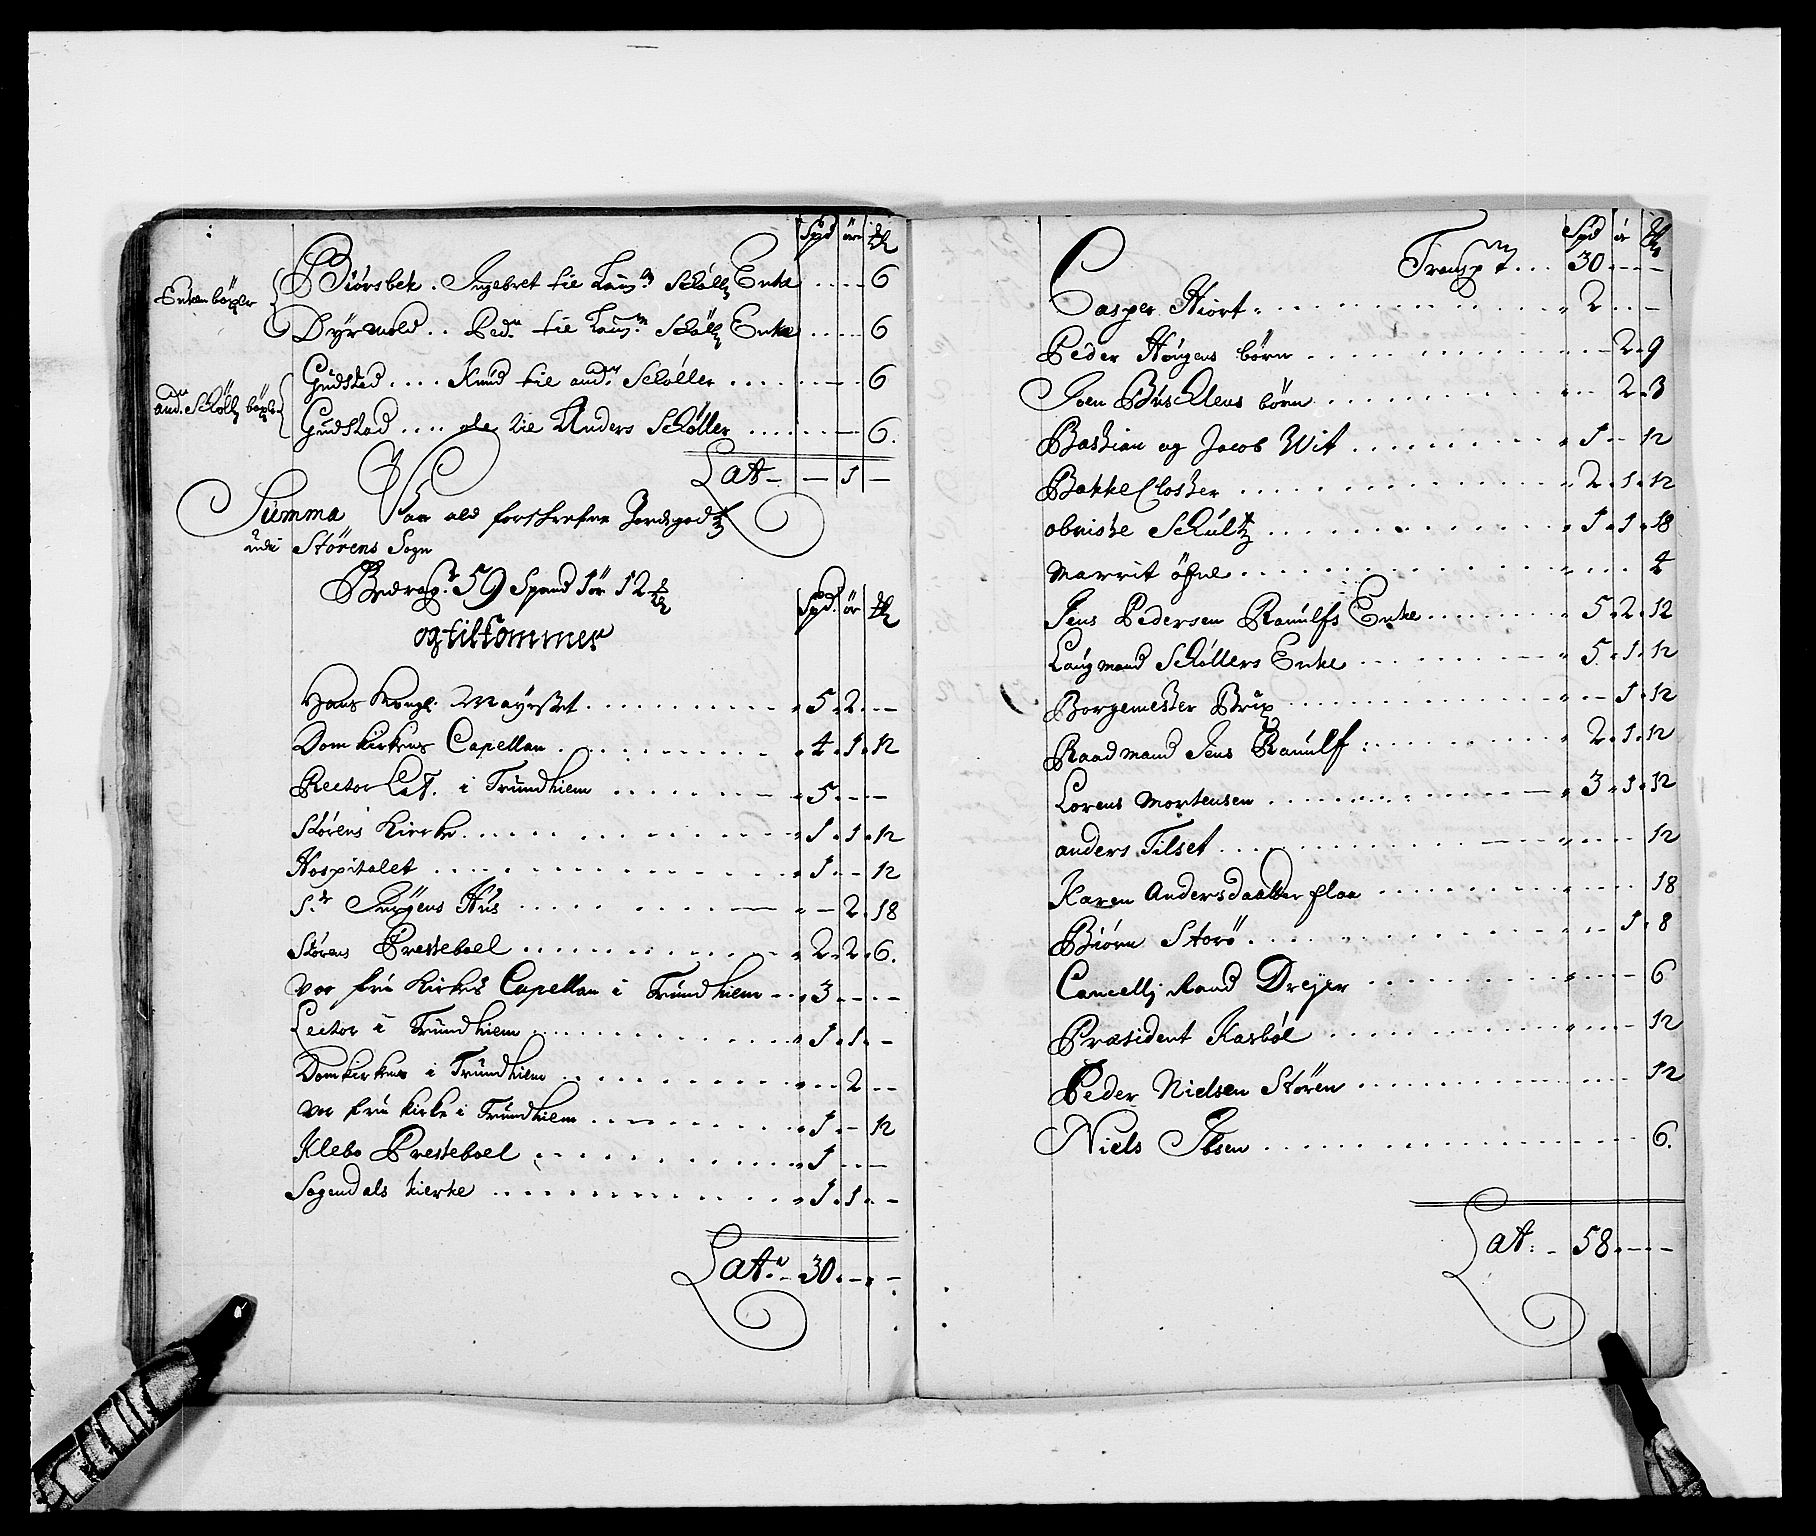 Spd ør
Biørsbek. Ingebret til Laug.m Schøll Enke .... 6
Dyrmold.. Ped.r til Laug.m Schøll Enke .... 6
Gudstad .... Knud til And.r Schøller .... 6
And.r Schøll
Gudstad .... ole til Anders Schøller .... 6.
Lat - - 1 -
Summa Paa all forskrefne Jordegodtz
udi Størens Sogn
Bedrag.r 59 Spand 1 ør 12
ogtilkommer
Spd. ør
Hans Kongl. Mayestet .... 5. 2. -
Domkirkens Capellan .... 4. 1. 12
Rector Lect. i Trundhiem .... 5. - -
Størens Kircke .... 1. 1. 12
Hospitalet .... 1. - 12
S.t Jørgens Hus .... - 2. 18
Størens Presteboel .... 2. 2. 6.
vor frue Kirkes Capellan i Trundhiem .. 3. - -
Lector i Trundhiem .... 1. 1. -
Domkirken i Trundhiem .... - 2 -
vor frue kirke i Trundhiem .... 1. - 12
Klebo Presteboel .... 1. - -
Sogendals kierke .... 1. 1. -
Lat.r - 30. - -
Spd ør
Transp.t ... 30. - -
Casper Hiort .... 2. - -
Peder Høyens børn .... - 2. 9
Joen Busch børn .... 2. 3
Bastian og Jacob Wit .... 1 - 12
BakkeCloster .... 2. 1. 12
obriste Schultz .... 1. 1. 18
Marrit øfne .... 4
Jens Pedersen Ramulfs Enke .... 5. 2. 12
Laugmand Schøllers Enke .... 5. 1. 12
Borgemester Brix .... - 1. 12
Raadmand Jens Ramulf .... 2. 1. 12
Lorens Mortensen .... 3. 1. 12
anders Tilset .... 12
Karen Andersdaatter floa .... 18
Biørn Storø .... - 1. 8
Cancellj Raad Dreyer .... 6
Præsident Kasbøl .... 12
Peder Nielsen Støren .... 12
Niels Ibsen .... 6.
Lat: - 58. - -